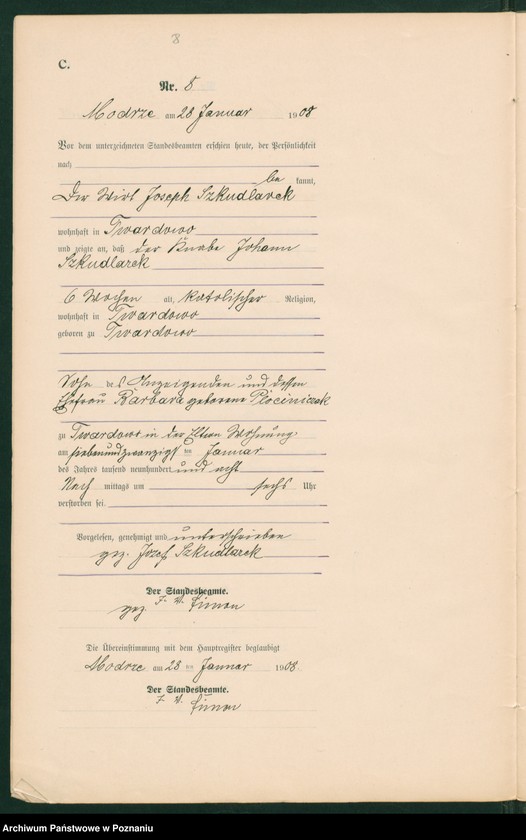 8
C.
Nr. 8
Modrze am 28 Januar 1908
Vor dem unterzeichneten Standesbeamten erschien heute, der Persönlichkeit
nach
be kannt,
Der Wirt Joseph Szkudlarek
wohnhaft in Twardowo
und zeigte an, daß der Knabe Johann
Szkudlarek
6 Wochen alt, katolischer Religion,
wohnhaft in Twardowo
geboren zu Twardowo
Sohn des Anzeigenden und dessen
Ehefrau Barbara geborene Plociniczak
zu Twardowo in der Eltern Wohnung
am siebenundzwanzigsten Januar
des Jahres tausend neunhundert und acht
Nach mittags um sechs Uhr
verstorben sei.
Vorgelesen, genehmigt und unterschrieben
gez. Jozef Szkudlarek
Der Standesbeamte.
gez. I. V.
Die Übereinstimmung mit dem Hauptregister beglaubigt
Modrze am 28 ten Januar 1908
Der Standesbeamte.
I. V.
Archiwum Państwowe w Poznaniu